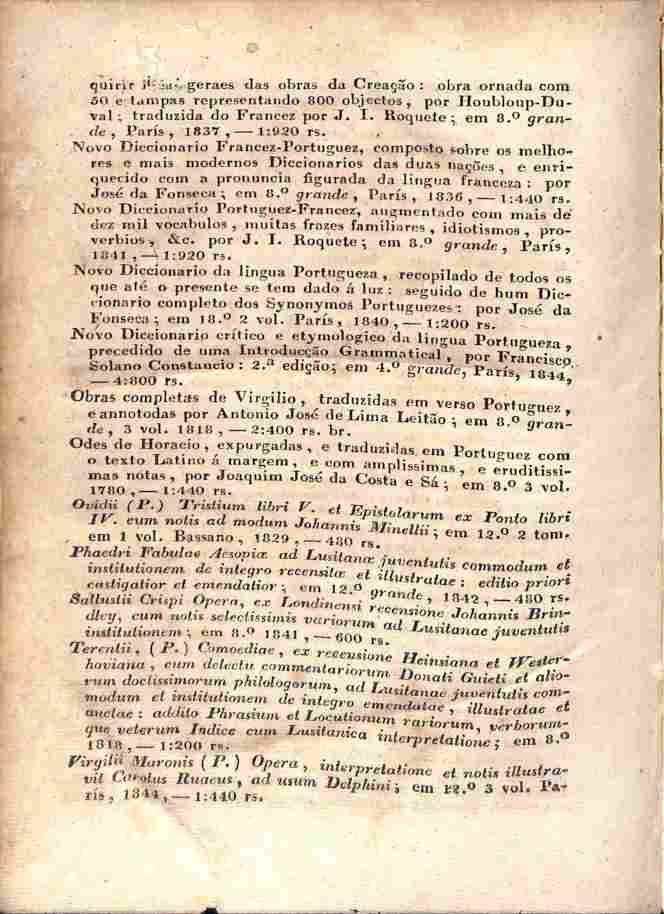 quirir geraes das obras da Creação : obra ornada com
50 estampas representando 800 objectos , por Houbloup-Du-
val ; traduzida do Francez por J. I. Roquete ; em 8.º gran-
de , París , 1837 , — 1:920 rs.
Novo Diccionario Francez-Portuguez, composto sobre os melho-
res e mais modernos Diccionarios das duas nações , e enri-
quecido com a pronuncia figurada da lingua franceza : por
José da Fonseca ; em 8.º grande , París , 1836 , — 1:440 rs.
Novo Diccionario Portuguez-Francez, augmentado com mais de
dez mil vocabulos , muitas frazes familiares , idiotismos , pro-
verbios , &c. por J. I. Roquete ; em 8.º grande , París ,
1841 , — 1:920 rs.
Novo Diccionario da lingua Portugueza , recopilado de todos os
que até o presente se tem dado á luz : seguido de hum Dic-
cionario completo dos Synonymos Portuguezes : por José da
Fonseca ; em 18.º 2 vol. París , 1840 , — 1:200 rs.
Novo Diccionario crítico e etymologico da lingua Portugueza ,
precedido de uma Introducção Grammatical , por Francisco
Solano Constancio : 2.ª edição ; em 4.º grande, París , 1844,
— 4:800 rs.
Obras completas de Virgilio , traduzidas em verso Portuguez ,
e annotodas por Antonio José de Lima Leitão ; em 8.º gran-
de , 3 vol. 1818 , — 2:400 rs. br.
Odes de Horacio , expurgadas , e traduzidas em Portuguez com
o texto Latino á margem , e com amplissimas , e eruditissi-
mas notas , por Joaquim José da Costa e Sá ; em 8.º 3 vol.
1780 , — 1:440 rs.
Ovidii ( P. ) Tristium libri V. et Epistolarum ex Ponto libri
IV. cum notis ad modum Johannis Minellii ; em 12.º 2 tom.
em 1 vol. Bassano , 1829 , — 480 rs.
Phaedri Fabulae Æsopiæ ad Lusitanæ juventutis commodum et
institutionem de integro recensitæ et illustratae : editio priori
castigatior et emendatior ; em 12.º grande , 1842 , — 480 rs.
Sallustii Crispi Opera, ex Londinensi recensione Johannis Brin-
dley, cum notis selectissimis variorum ad Lusitanae juventutis
institutionem ; em 8.º 1841 , — 600 rs.
Terentii , ( P. ) Comoediae , ex recensione Heinsiana et Wester-
hoviana , cum delectu commentariorum Donati Guieti et alio-
rum doctissimorum philologorum , ad Lusitanae juventutis com-
modum et institutionem de integro emendatae , illustratae et
auctae : addito Phrasium et Locutionum rariorum, verborum-
que veterum Indice cum Lusitanica interpretatione ; em 8.º
1818 , — 1:200 rs.
Virgilii Maronis ( P. ) Opera , interpretatione et notis illustra-
vit Carolus Ruaeus , ad usum Delphini ; em 12.º 3 vol. Pa-
rís , 1844 , — 1:440 rs.